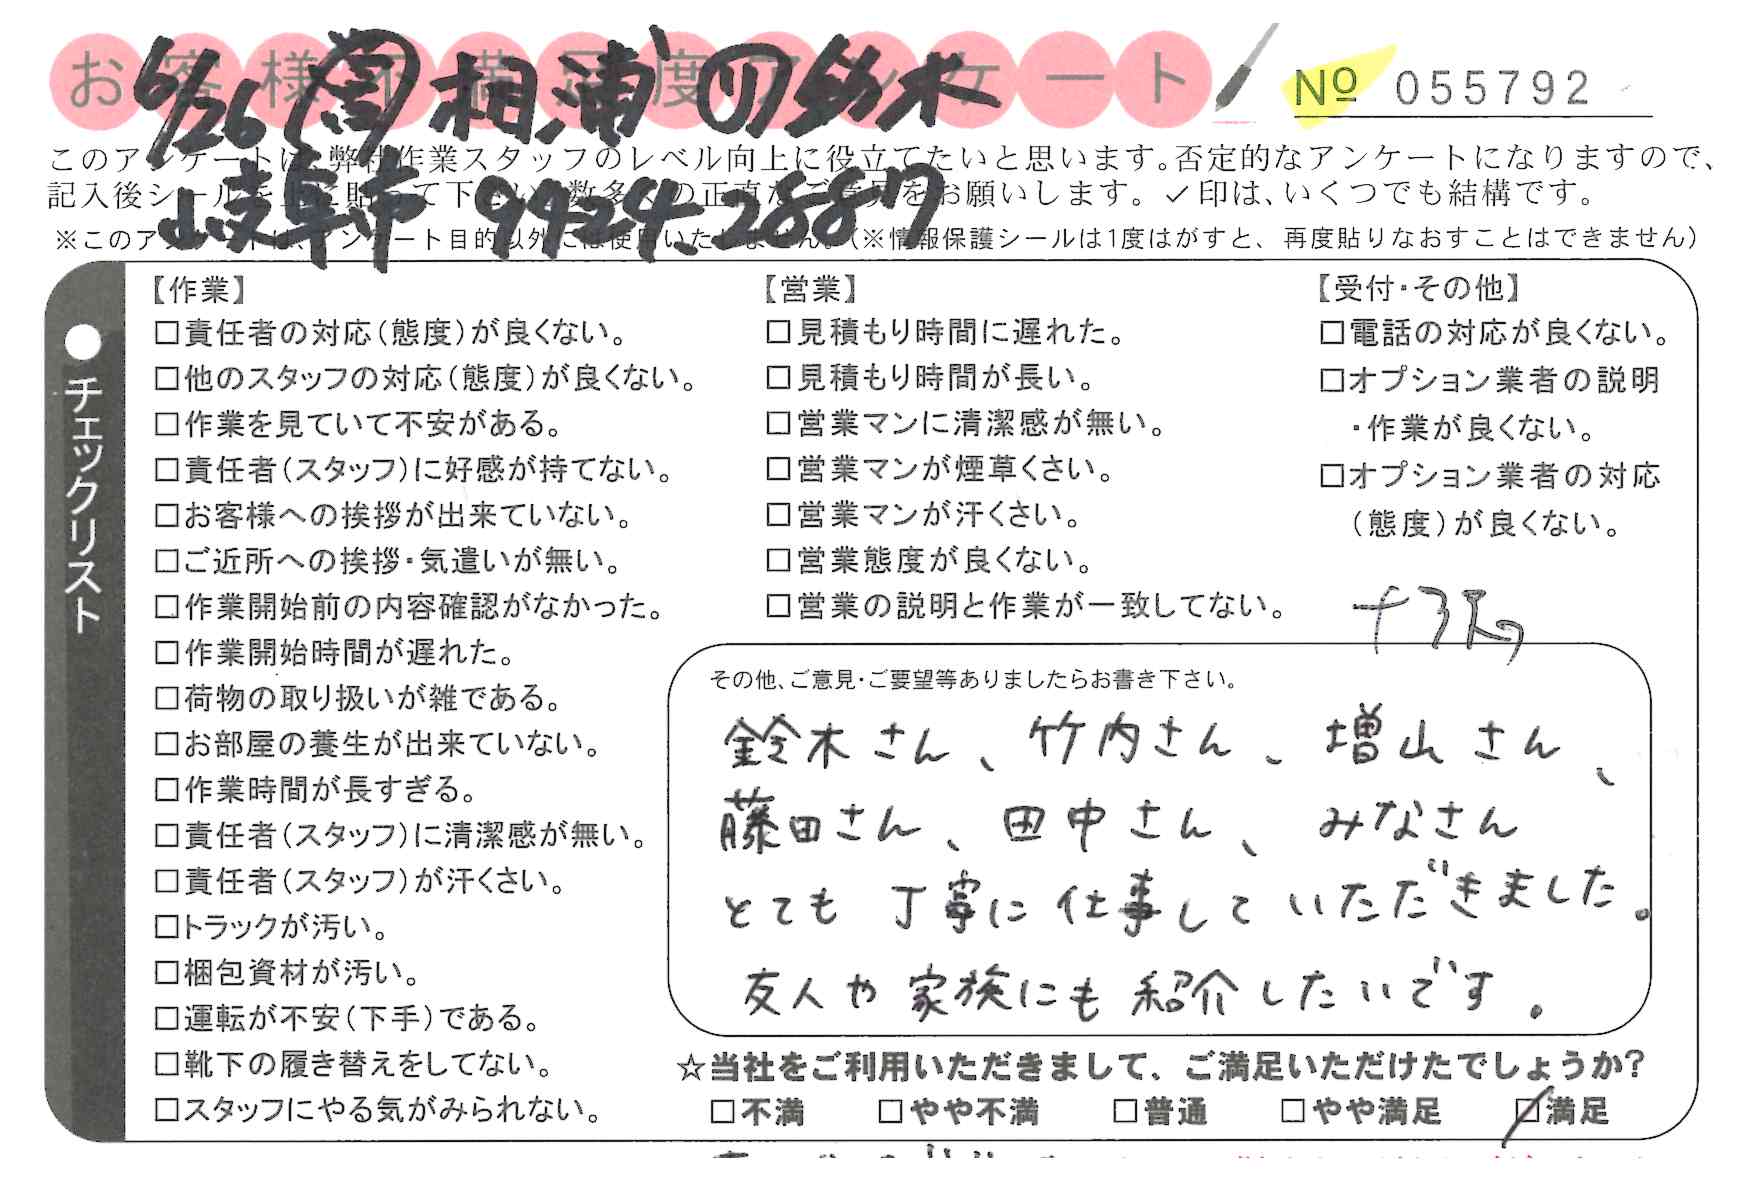 お客様不満足度アンケート
№ 055792
6/26 営 相浦 リ 鈴木
岐阜市 9924-2887
このアンケートは、弊社作業スタッフのレベル向上に役立てたいと思います。否定的なアンケートになりますので、
記入後シールを上に貼って下さい。数多くの正直なご意見をお願いします。✓印は、いくつでも結構です。
※このアンケートは、アンケート目的以外には使用いたしません。(※情報保護シールは1度はがすと、再度貼りなおすことはできません)
●チェックリスト
【作業】
□責任者の対応(態度)が良くない。
□他のスタッフの対応(態度)が良くない。
□作業を見ていて不安がある。
□責任者(スタッフ)に好感が持てない。
□お客様への挨拶が出来ていない。
□ご近所への挨拶・気遣いが無い。
□作業開始前の内容確認がなかった。
□作業開始時間が遅れた。
□荷物の取り扱いが雑である。
□お部屋の養生が出来ていない。
□作業時間が長すぎる。
□責任者(スタッフ)に清潔感が無い。
□責任者(スタッフ)が汗くさい。
□トラックが汚い。
□梱包資材が汚い。
□運転が不安(下手)である。
□靴下の履き替えをしてない。
□スタッフにやる気がみられない。
【営業】
□見積もり時間に遅れた。
□見積もり時間が長い。
□営業マンに清潔感が無い。
□営業マンが煙草くさい。
□営業マンが汗くさい。
□営業態度が良くない。
□営業の説明と作業が一致してない。
【受付・その他】
□電話の対応が良くない。
□オプション業者の説明
・作業が良くない。
□オプション業者の対応
(態度)が良くない。
その他、ご意見・ご要望等ありましたらお書き下さい。
鈴木さん、竹内さん、増山さん、
藤田さん、田中さん、みなさん
とても丁寧に仕事していただきました。
友人や家族にも紹介したいです。
☆当社をご利用いただきまして、ご満足いただけたでしょうか?
□不満 □やや不満 □普通 □やや満足 □満足